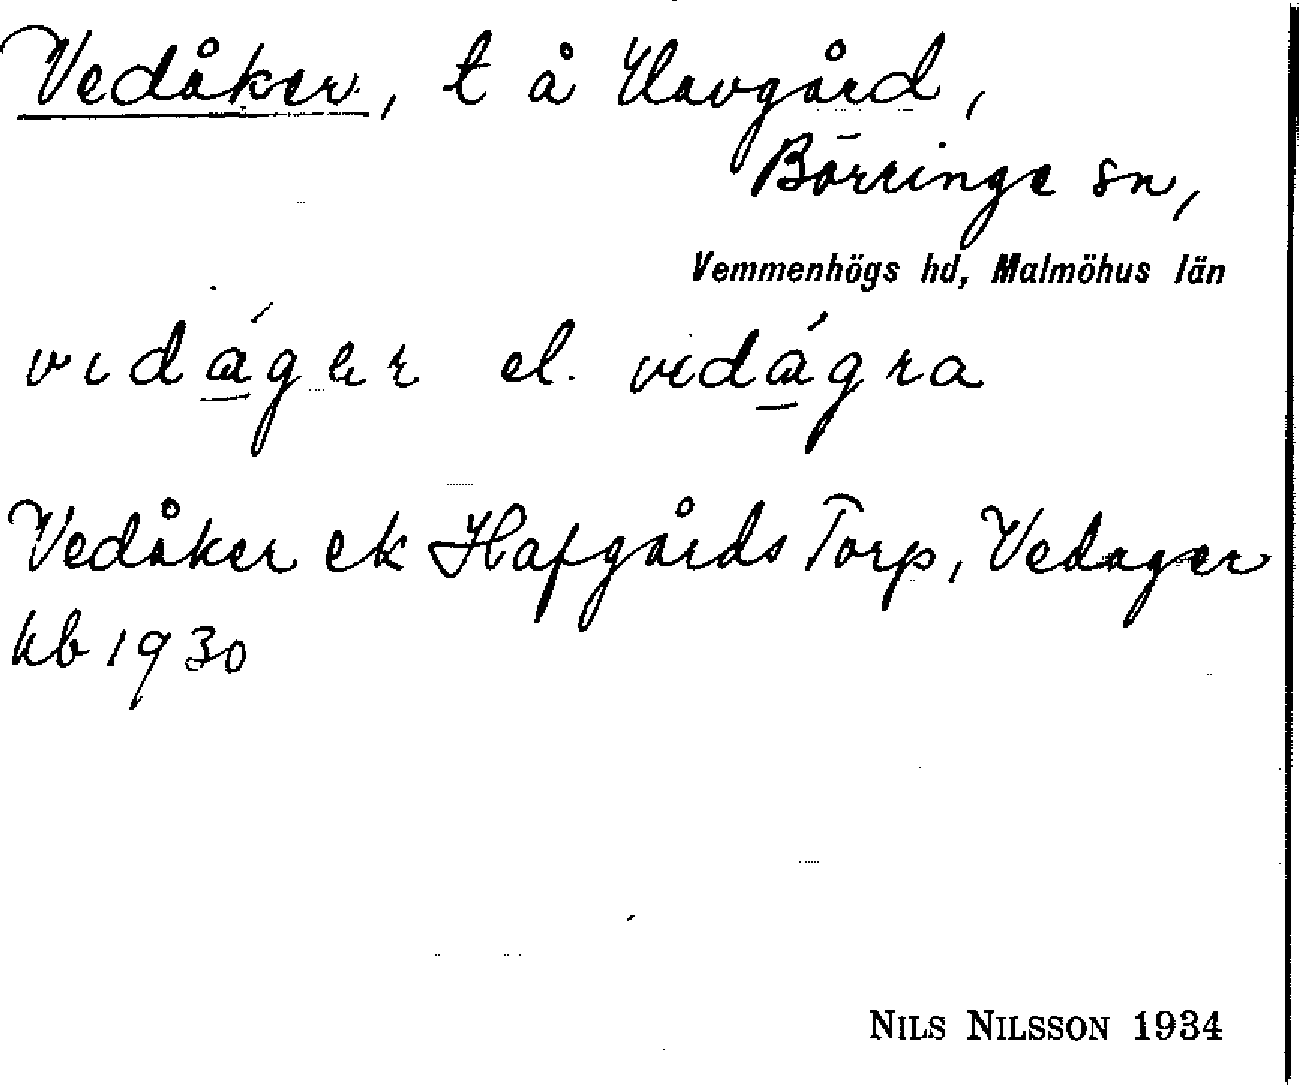 Vedåker, t å Havgård,
Börringe sn,
Vemmenhögs hd, Malmöhus län
vidágər el. vidágra
Vedåker ek Hafgårds Torp, Vedager
kb 1930
NILS NILSSON 1934